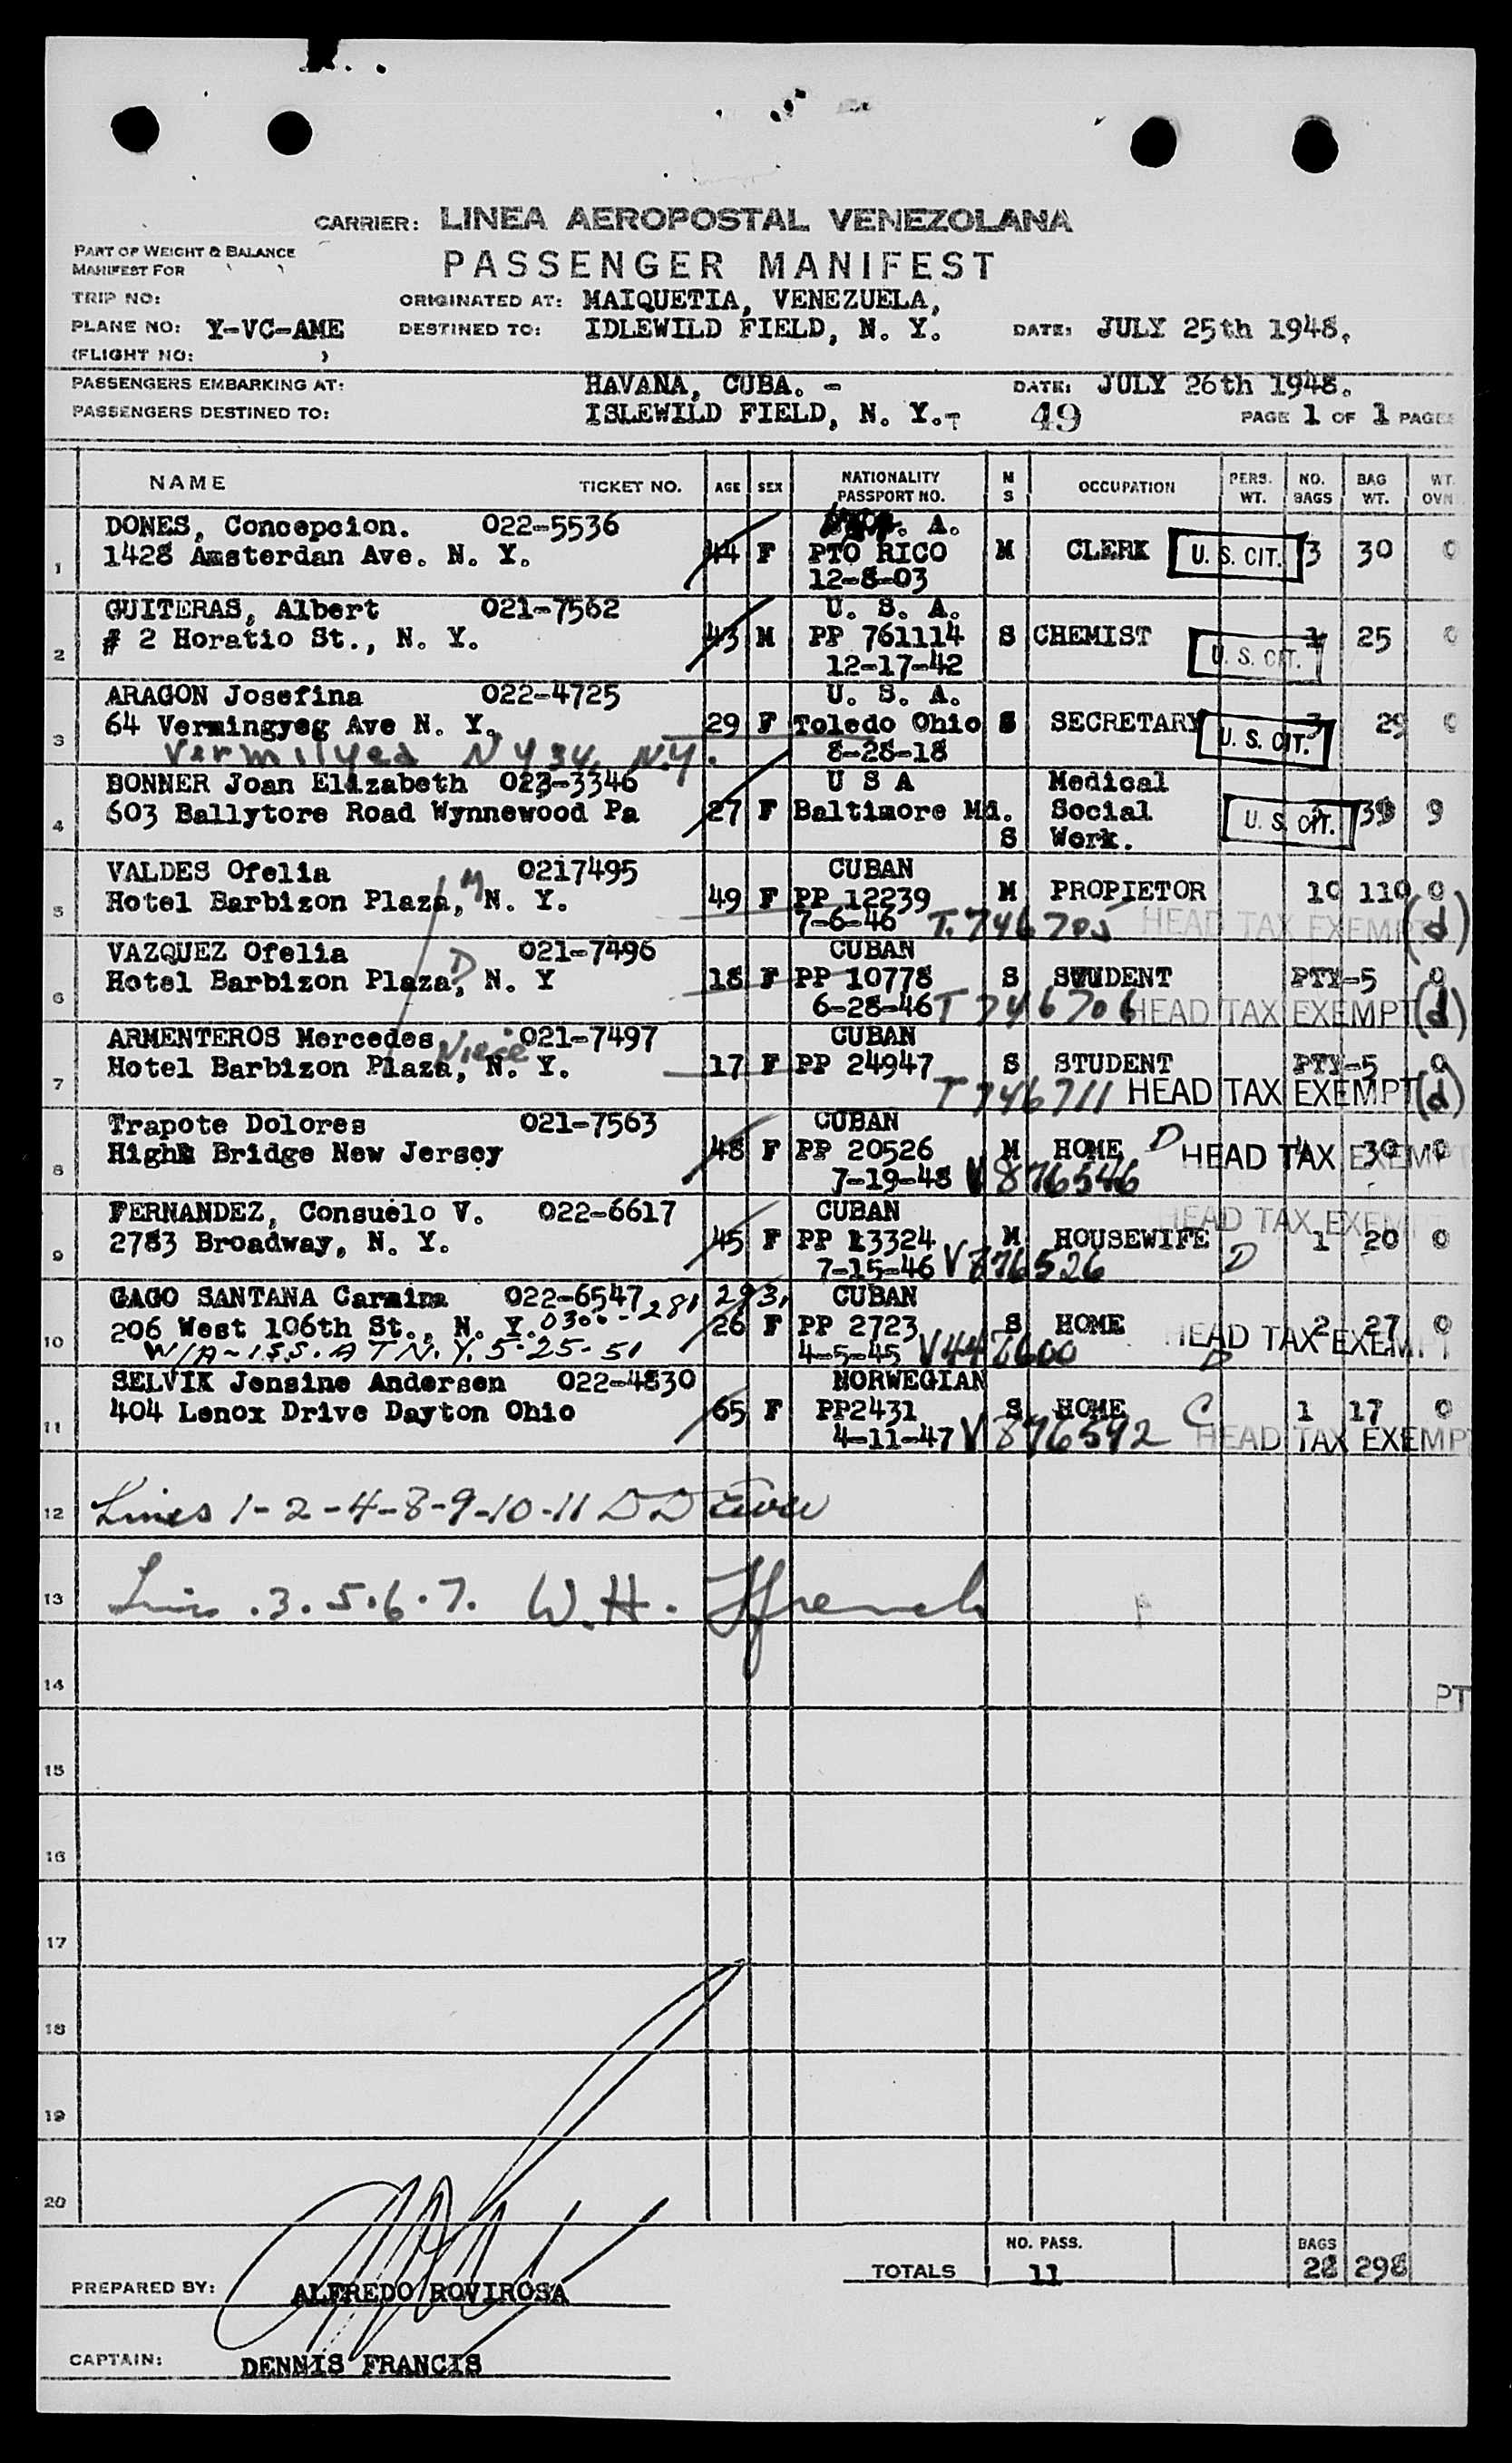 CARRIER: LINEA AEROPOSTAL VENEZOLANA
PART OF WEIGHT & BALANCE
MANIFEST FOR
PASSENGER MANIFEST
TRIP NO: ORIGINATED AT: MAIQUETIA, VENEZUELA,
PLANE NO: Y-VC-AME DESTINED TO: IDLEWILD FIELD, N. Y. DATE: JULY 25th 1948.
(FLIGHT NO: )
PASSENGERS EMBARKING AT: HAVANA, CUBA. - DATE: JULY 26th 1948.
PASSENGERS DESTINED TO: ISLEWILD FIELD, N. Y.- 49 PAGE 1 OF 1 PAGES
NAME TICKET NO. AGE SEX NATIONALITY PASSPORT NO. M S OCCUPATION PERS. WT. NO. BAGS BAG WT. WT. OVN
DONES, Concepcion. 022-5536 A.
1 1428 Amsterdan Ave. N. Y. 44 F PTO RICO M CLERK U. S. CIT. 3 30 0
12-8-03
GUITERAS, Albert 021-7562 U. S. A.
2 # 2 Horatio St., N. Y. 43 M PP 761114 S CHEMIST U. S. CIT. 1 25 0
12-17-42
ARAGON Josefina 022-4725 U. S. A.
3 64 Vermingyeg Ave N. Y. 29 F Toledo Ohio S SECRETARY U. S. CIT. 3 29 0
Vermilyea N Y 34, N.Y. 8-28-18
BONNER Joan Elizabeth 023-3346 U S A Medical
4 603 Ballytore Road Wynnewood Pa 27 F Baltimore Md. Social U. S. CIT. 39 9
S Work.
VALDES Ofelia 0217495 CUBAN
5 Hotel Barbizon Plaza, N. Y. M 49 F PP 12239 M PROPIETOR 10 110 0
7-6-46 T.746705 HEAD TAX EXEMPT (d)
VAZQUEZ Ofelia 021-7496 CUBAN
6 Hotel Barbizon Plaza, N. Y D 18 F PP 10778 S STUDENT PTY-5 0
6-28-46 T 746706 HEAD TAX EXEMPT (d)
ARMENTEROS Mercedes Niece 021-7497 CUBAN
7 Hotel Barbizon Plaza, N. Y. 17 F PP 24947 S STUDENT PTY-5 0
T 746711 HEAD TAX EXEMPT (d)
Trapote Dolores 021-7563 CUBAN
8 High Bridge New Jersey 48 F PP 20526 M HOME D HEAD TAX EXEMPT 4 30 0
7-19-48 V 876546
FERNANDEZ, Consuelo V. 022-6617 CUBAN HEAD TAX EXEMPT
9 2783 Broadway, N. Y. 45 F PP 13324 M HOUSEWIFE D 1 20 0
7-15-46 V 876526
GAGO SANTANA Carmina 022-6547 CUBAN
10 206 West 106th St., N. Y. 0300-281 26 F PP 2723 S HOME D HEAD TAX EXEMPT 2 27 0
W/A-ISS. AT N.Y. 5-25-51 4-5-45
SELVIK Jensine Andersen 022-4830 NORWEGIAN
11 404 Lenox Drive Dayton Ohio 65 F PP2431 S HOME C 1 17 0
4-11-47 V 876592 HEAD TAX EXEMP
12 Lines 1-2-4-8-9-10-11
13 3.5.6.7. W.H. Ffrench
14
PT
15
16
17
18
19
20
TOTALS NO. PASS. 11 BAGS 28 298
PREPARED BY: ALFREDO ROVIROSA
CAPTAIN: DENNIS FRANCIS